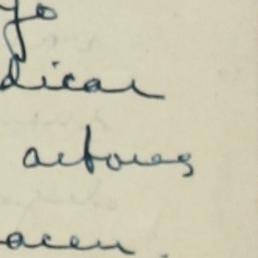 yo
dicar
actores
acen.